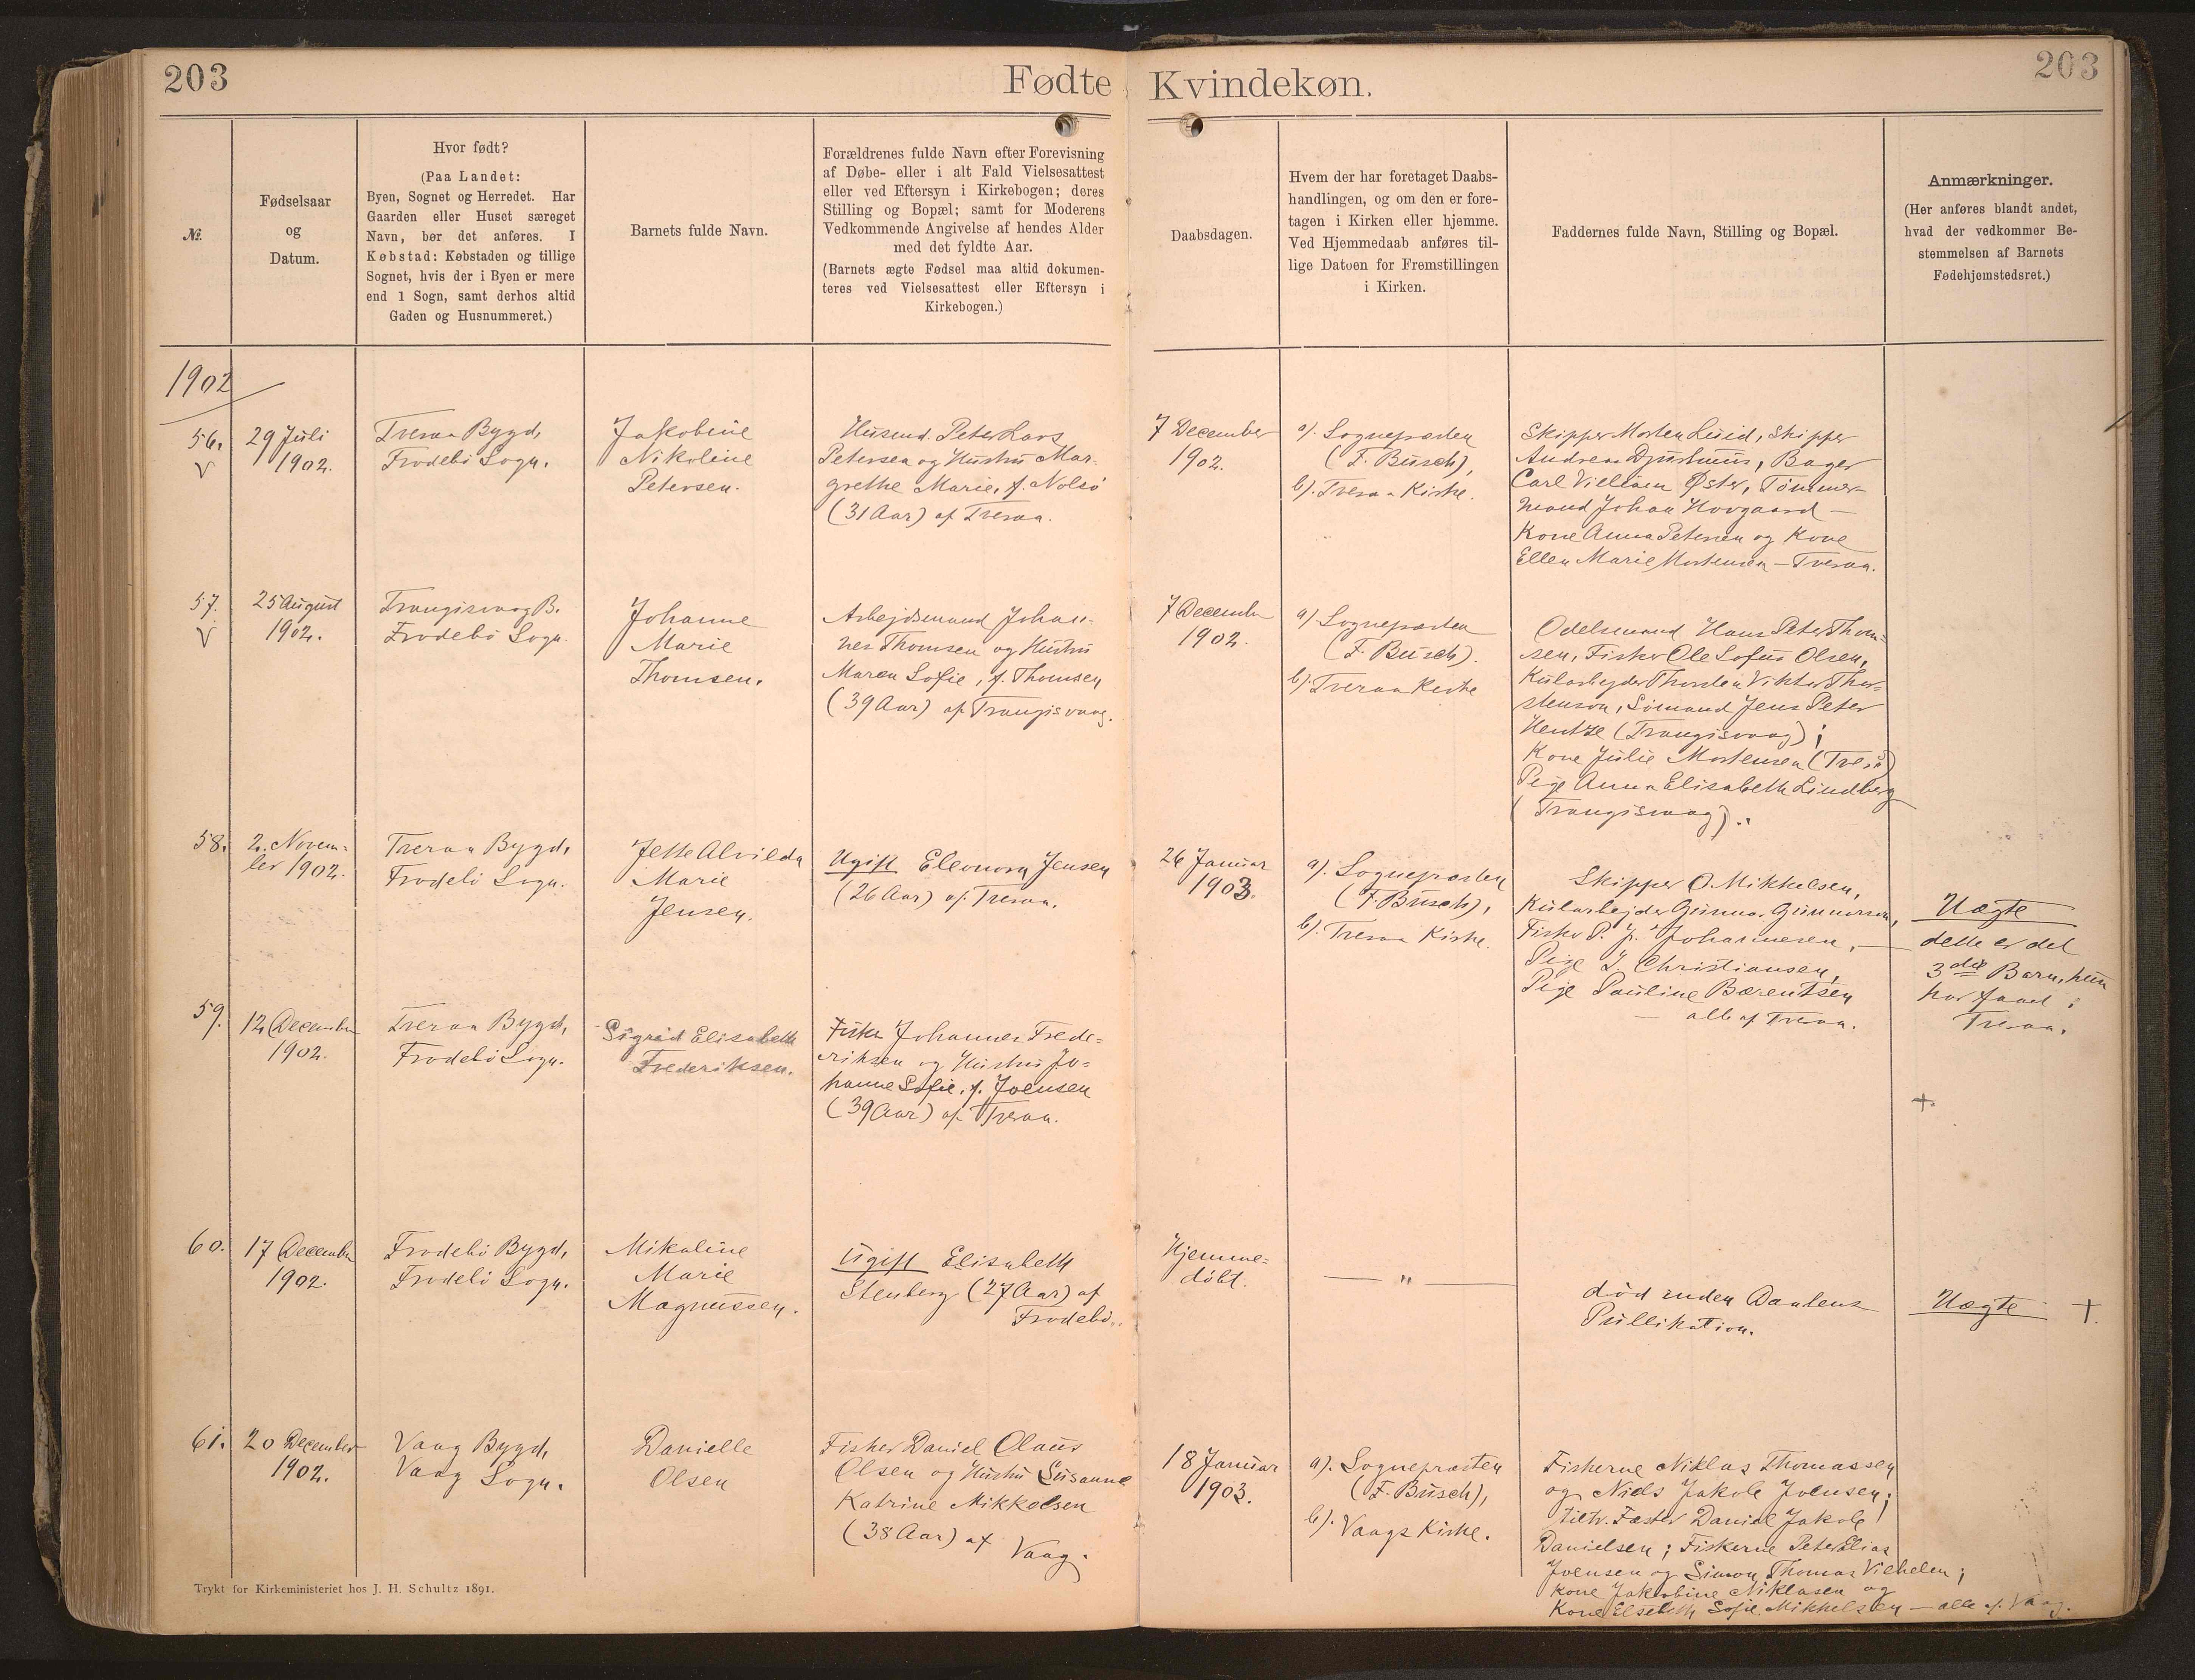 203
Fødte
Kvindekøn.
203
№.
Fødselsaar
og
Datum.
Hvor født?
(Paa Landet:
Byen, Sognet og Herredet. Har
Gaarden eller Huset særeget
Navn, bør det anføres. I
Købstad: Købstaden og tillige
Sognet, hvis der i Byen er mere
end 1 Sogn, samt derhos altid
Gaden og Husnummeret.)
Barnets fulde Navn.
Forældrenes fulde Navn efter Forevisning
af Døbe- eller i alt Fald Vielsesattest
eller ved Eftersyn i Kirkebogen; deres
Stilling og Bopæl; samt for Moderens
Vedkommende Angivelse af hendes Alder
med det fyldte Aar.
(Barnets ægte Fødsel maa altid dokumen-
teres ved Vielsesattest eller Eftersyn i
Kirkebogen.)
Daabsdagen.
Hvem der har foretaget Daabs-
handlingen, og om den er fore-
tagen i Kirken eller hjemme.
Ved Hjemmedaab anføres til-
lige Datoen for Fremstillingen
i Kirken.
Faddernes fulde Navn, Stilling og Bopæl.
Anmærkninger.
(Her anføres blandt andet,
hvad der vedkommer Be-
stemmelsen af Barnets
Fødehjemstedsret.)
1902
56.
29 Juli
1902.
Tveraa Bygd,
Frodebö Sogn.
Jakobine
Nikoline
Petersen.
Husmd. Peter Lars
Petersen og Hustru Mar-
grethe Marie, f. Nolsö
(31 Aar) af Tveraa.
7 December
1902.
a). Sognepræsten
(F. Busch),
b). Tveraa Kirke.
Skipper Morten Luid, Skipper
Andreas Djurhuus, Bager
Carl Villiam Øster, Tömmer-
mand Johan Hovgaard —
Kone Anna Petersen og Kone
Ellen Marie Mortensen — Tveraa.
57.
25 August
1902.
Trangisvaag B.
Frodebö Sogn.
Johanne
Marie
Thomsen.
Arbejdsmand Johan-
nes Thomsen og Hustru
Maren Sofie, f. Thomsen
(39 Aar) af Trangisvaag.
7 December
1902.
a). Sognepræsten
(F. Busch).
b). Tveraa Kirke
Odelsmand Hans Peter Thom-
sen, Fisker Ole Sofus Olsen,
Kularbejder Thorsten Viktor Thor-
stenson, Sömand Jens Peter
Hentze (Trangisvaag);
Kone Julie Mortensen (Tverå)
Pige Anna Elisabeth Lindberg
(Trangisvaag).
58.
2. Novem-
ber 1902.
Tveraa Bygd,
Frodebö Sogn.
Jette Alvilda
Marie
Jensen.
Ugift Eleonora Jensen
(26 Aar) af Tveraa.
26 Januar
1903.
a). Sognepræsten
(F. Busch),
b). Tveraa Kirke.
Skipper O. Mikkelsen,
Kularbejder Gunnar Gunnarson,
Fisker P. J. Johannesen, —
Pige J. Christiansen,
Pige Pauline Bærentsen
— alle af Tveraa.
Uægte
dette er det
3die Barn, hun
har faaet i
Tveraa.
59.
12 December
1902.
Tveraa Bygd,
Frodebö Sogn.
Sigrid Elisabeth
Frederiksen.
Fisker Johannes Frede-
riksen og Hustru Jo-
hanne Sofie, f. Joensen
(39 Aar) af Tveraa.
+.
60.
17 December
1902.
Frodebö Bygd,
Frodebö Sogn.
Mikaline
Marie
Magnussen.
Ugift Elisabeth
Stenberg (27 Aar) af
Frodebö.
Hjemme-
döbt.
— " —
död inden Daabens
Publikation.
Uægte +.
61.
20 December
1902.
Vaag Bygd,
Vaag Sogn.
Danielle
Olsen
Fisker Daniel Olaus
Olsen og Hustru Susanne
Katrine Mikkelsen
(38 Aar) af
Vaag.
18 Januar
1903.
a). Sognepræsten
(F. Busch),
b). Vaags Kirke.
Fiskerne Niklas Thomassen
og Niels Jakob Joensen;
Fæster Daniel Jakob
Danielsen; Fiskerne Peter Elias
Joensen og Simon Thomas Vilhelm;
Kone Jakobine Niklasen og
Kone Elsebeth Sofie Mikkelsen — alle af Vaag.
Trykt for Kirkeministeriet hos J. H. Schultz 1891.